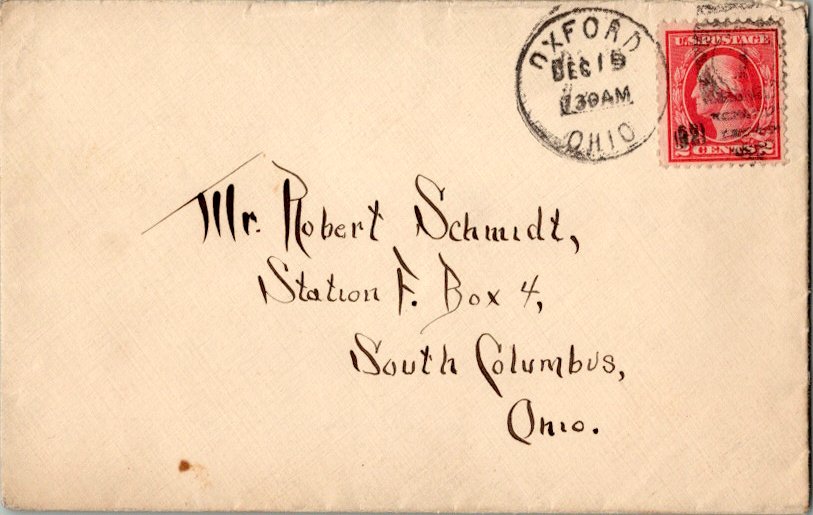 OXFORD
DEC 15
730AM
OHIO
U.S. POSTAGE
2 CENTS 2
Mr. Robert Schmidt,
Station F. Box 4,
South Columbus,
Ohio.